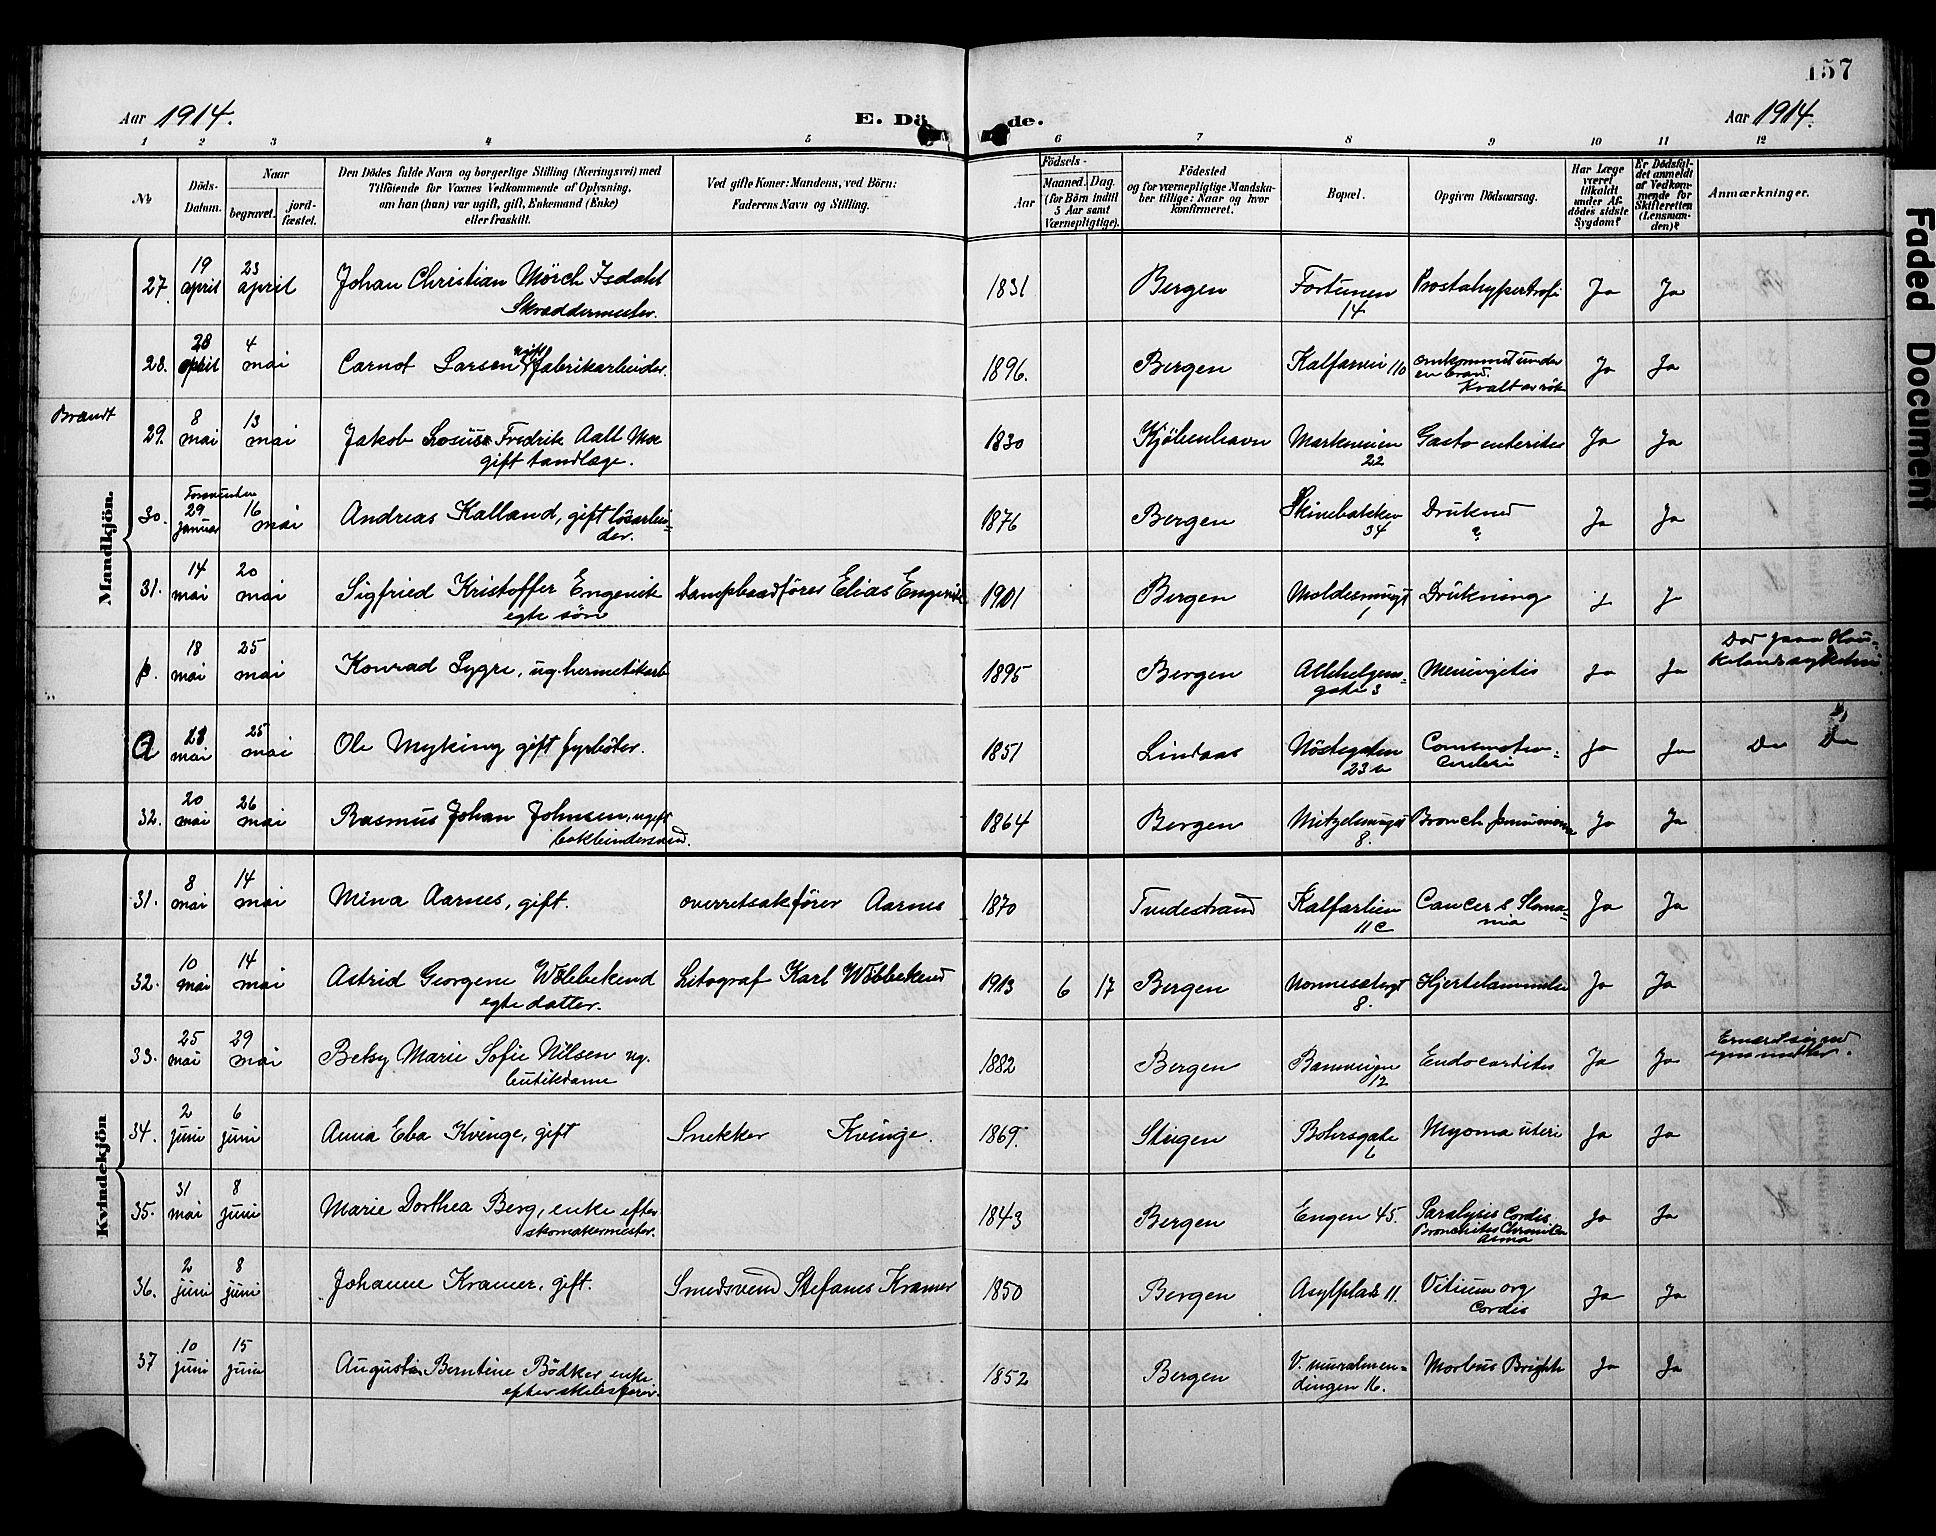 157
Aar 1914.
E. Dö de.
Aar 1914.
1 2 3 4 5 6 7 8 9 10 11 12
No
Döds-Datum.
Naar
begravet.
jord-fæstet.
Den Dödes fulde Navn og borgerlige Stilling (Næringsvei) med
Tilföiende for Voxnes Vedkommende af Oplysning,
om han (hun) var ugift, gift, Enkemand (Enke)
eller fraskilt.
Ved gifte Koner: Mandens, ved Börn:
Faderens Navn og Stilling.
Födsels-
Aar
Maaned. Dag.
(for Börn indtil
5 Aar samt
Værnepligtige).
Födested
og for værnepligtige Mandska-
ber tillige: Naar og hvor
konfirmeret.
Bopæl.
Opgiven Dödsaarsag.
Har Læge
været
tilkaldt
under Af-
dödes sidste
Sygdom?
Er Dödsfal-
det anmeldt
af Vedkom-
mende for
Skifteretten
(Lensman-
den)?
Anmærkninger.
Mandkjön.
27. 19 april 23 april Johan Christian Mörch Isdahl
Skræddermester. 1831 Bergen Fortunen 14 Prostahypertrofi Ja Ja
28. 28 april 4 mai Carnot Larsen ugift fabrikarbeider. 1896. Bergen Kalfarvei 110 omkommet under
en brand.
Kvalt av rök Ja Ja
Brandt
29. 8 mai 13 mai Jakob Fredrik Aall Moe
gift tandlæge. 1830 Kjöbenhavn Markeveien 22 Gastro enterites Ja Ja
30. Forsvunden
29 januar 16 mai Andreas Kalland, gift lösarbei-
der. 1876 Bergen Skivebakken 34 Druknet
? Ja Ja
31. 14 mai 20 mai Sigfried Kristoffer Engevik
egte sön Dampbaadförer Elias Engevik 1901 Bergen 1 Drukning J J
p. 18 mai 25 mai Konrad Lygre, ug. hermetikarb 1895 Bergen Allehelgens-
gate 3 Meningitis Ja Ja Död paa Hau-
kelandsykehus
a 21 mai 25 mai Ole Myking gift fyrböter. 1851 Lindaas Nöstegaten
23 Comotio
cerebri Ja Ja Do Do
32. 20 mai 26 mai Rasmus Johan Johnsen, ugift
bokbindersvend. 1864 Bergen 8. Bronch pneumonia Ja Ja
Kvindekjön
31. 8 mai 14 mai Mina Aarnes, gift. overretsakförer Aarnes 1870 Tvedestrand Kalfarlien
11 c Cancer Ja Ja
32. 10 mai 14 mai Astrid Georgene Wöbbekend
egte datter. Litograf Karl Wöbbekend 1913 6 17 Bergen Nonnesetergt
8. Hjertelammelse Ja Ja
33. 25 mai 29 mai Betsy Marie Sofie Nilsen ug.
butikdame 1882 Bergen 12 Endocarditis Ja Ja
34. 2 juni 6 juni Anna Eba Kvinge, gift Snekker Kvinge. 1869. Steigen Bohrsgate
6 Myoma uteri Ja Ja
35. 31 mai 8 juni Marie Dorthea Berg, enke efter
skomakermester. 1843 Bergen Engen 45. Paralysis Cordis
Bronchites Chronica
Asma Ja Ja
36. 2 juni 8 juni Johanne Kramer, gift. Smedsvend Stefanus Kramer 1850 Bergen Asylplads 11. Vitium org
Cordis Ja Ja
37 10 juni 15 juni Augusta Berntine Bödker, enke
efter skibsförer. 1852 Bergen V. muralmen-
dingen 16. Morbus Brighti Ja Ja
Faded Document